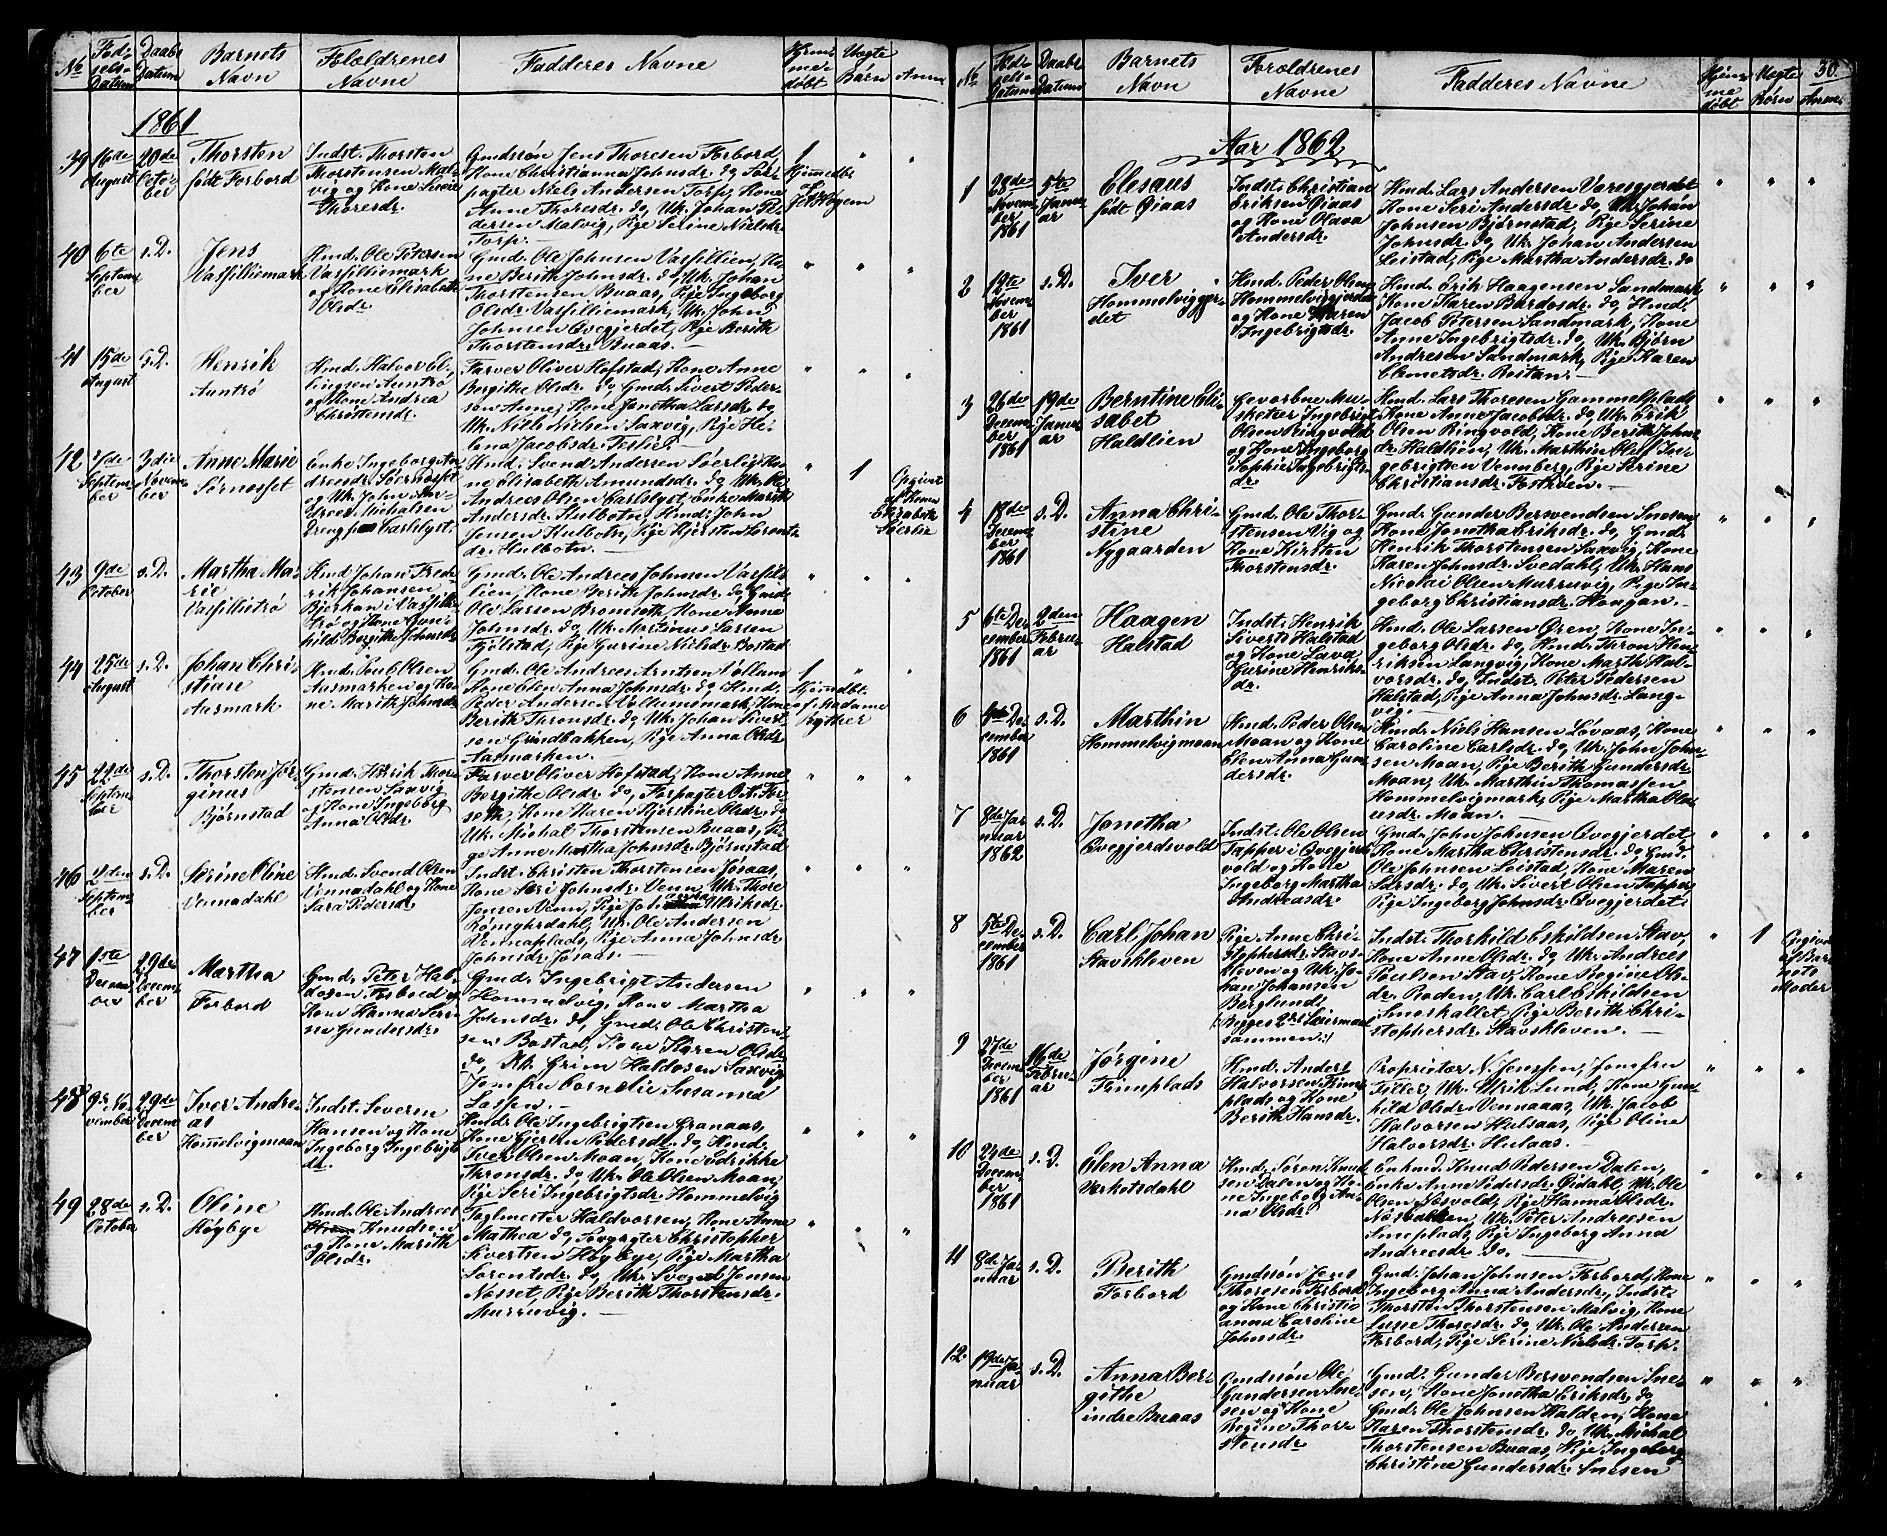 No
Fød-
sels-
Datum
Daabs
Datum
Barnets
Navn
Forældrenes
Navne
Faddernes Navne
Hjem-
me-
døbt
Uægte
Barn
Anm.
1861
39
16de
August
20de
Octo-
ber
Thorsten
født Forbord
Indst. Thorsten
Thorstensen Mal-
vig og Kone
Thoresdr.
Gmdssøn Jens Thoresen Forbord,
Kone Christianna Johnsdr. do, For-
pagter Niels Andersen Torp, Kone
Anne Thoresdr. do, Uk. Johan Pe-
dersen Malvig, Pige Serine Nielsdr.
Torp.
1
Hjemedbt
af
40
6te
Septem-
ber
s. D.
Jens
Vasfilliemark
Hmd. Ole Petersen
Vasfilliemark
og Kone Elisabeth
Olsdr.
Gmd. Ole Johnsen Vasfillien, Ko-
ne Berith Johnsdr. do, Uk. Johan
Thorstensen Buaas, Pige Ingeborg
Olsdr. Vasfilliemark, Uk. John
Johnsen Qvegjerdet, Pige Berith
Thorstensdr. Buaas.
41
15de
August
s. D.
Henrik
Auntrø
Hmd. Halvor El-
lingsen Auntrø
og Kone Andrea
Christensdr.
Farver Oliver Hofstad, Kone Anne
Bergithe Olsdr. do, Gmd. Sivert Peder-
sen Anne, Kone Jonetha Larsdr. do,
Uk. Niels Nielsen Saxvig, Pige He-
lena Jacobsdr. Feslie.
42
Septem-
ber
3die
Novem-
ber
Anne Marie
Sørnosset
Enke Ingeborg An-
dreasdr. Sørnosset
og Uk. John An-
dreas Michalsen
Dreng paa Carlslyst.
Hmd. Svend Andersen Sørlig, Ko-
ne Elisabeth Amundsdr. do, Uk. Ole
Andreas Olsen Carlslyst, Enke Marith
Andersdr. Hulbotn, Hmd. John
Jensen Hulbotn, Pige Kjersten Lorents-
dr. Hulbotn.
1
Opgivet
af Konen
Elisabeth
Sørlie
43
9de
October
s. D.
Martha Ma-
rie
Vasfillietrø
Hmd. Johan Frede-
rik Johansen
Bjerkan i Vasfillie-
trø og Kone Gun-
hild Bergithe Johnsdr.
Gmd. Ole Andreas Johnsen Vasfil-
lien, Kone Berith Johnsdr. do, Gmd.
Ole Larsen Bromseth, Kone Anne
Johnsdr. do, Uk. Martinus Larsen
Fjølstad, Pige Gurine Nielsdr. Bostad
44
25de
August
s. D.
Johan Chri-
stian
Aasmark
Hmd. Poul Olsen
Aasmarken og Ko-
ne Marith Johnsdr.
Gmd. Ole Andreas Arntsen Vollum
Kone Elen Anna Johnsdr. do, Hmd.
Peder Andersen Vollumsmark, Kone
Berith Thronsdr. do, Uk. Johan Sivert-
sen Grindbakken, Pige Anna Olsdr.
Aasmarken.
1
Hjemdbt.
af Madame
Rÿther
45
22de
Septem-
ber
s. D.
Thorsten Jør-
ginus
Bjørnstad
Gmd. Henrik Thor-
stensen Saxvig
og Kone Ingeborg
Anna Olsdr.
Farver Oliver Hofstad, Kone Anne
Bergithe Olsdr. do, Forpagter O. A. For-
seth, Kone Karen Kjerstine Olsdr. do
Uk. Michal Thorstensen Buaas, Pi-
ge Anne Martha Johnsdr. Bjørnstad
46
2den
Septem-
ber
s. D.
Serine Oline
Vennadahl
Hmd. Svend Olsen
Vennadahl og Kone
Sara Pedersdr.
Indst. Christen Thorstensen Jøsaas,
Kone Seri Johnsdr. Venn, Uk. Thore
Jensen Venn, Pige Johanna Ulriksdr.
Uk. Ole Andersen
Vennaplads, Pige Anna Johnsdr.
Johnsdr. Jøsaas.
47
1ste
Decem-
ber
29de
Decem-
ber
Martha
Forbord
Gmd. Peter Hal-
dosen Forbord og
Kone Hanna Seri-
ne Gundersdr.
Gmd. Ingebrigt Andersen
Hommelvig, Kone Martha
Johnsdr. do, Gmd. Ole Christen-
sen Bostad, Kone Karen Olsdr.
do, Uk. Grim Haldosen Saxvig,
Jomfru Cornelie Susanna
Lassen.
48
9de No-
vember
29de
Decem-
ber
Iver Andre-
as
Hommelvigmoan
Indst. Severin
Hansen og Kone
Ingeborg Ingebrigts-
dr.
Hmd. Ole Ingebrigtsen Granaas,
Kone Gjertru Pedersdr. do, Hmd.
Iver Olsen Moan, Kone Edrikke
Thronsdr. do, Uk. Ole Olsen Moan,
Pige Seri Ingebrigtsdr. Hommelvig
49
28de
October
s. D.
Oline
Høgbye
Hmd. Ole Andreas
Knudsen
og Kone Marith
Olsdr.
Teglmester Haldvorsen, Kone Anne
Mathea do, Christopher
Sivertsen Høgbye, Pige Martha
Lorentsdr. do, Uk. Svend Jensen
Nosset, Pige Berith Thorstensdr.
Murruvig.
No
Fød-
sels-
Datum
Daabs
Datum
Barnets
Navn
Forældrenes
Navne
Faddernes Navne
Hjem-
me
døbt
Uægte
Børn
30.
Anm.
Aar 1862
1
28de
Novem-
ber
1861
5te
Janu-
ar
Elesæus
født Qiaas
Indst. Christian
Eriksen Qiaas
og Kone Olava
Andersdr.
Hmd. Lars Andersen Varesgjerdet
Kone Seri Andersdr. do, Uk. Johan
Johnsen Bjørnstad, Pige Serine
Johnsdr. do, Uk. Johan Andersen
Leistad, Pige Martha Andersdr. do
2
12te
Novem-
ber
1861
s. D.
Iver
Hommelviggjer-
det
Hmd. Peder Olsen
Hommelviggjerdet
og Kone Maren
Ingebrigtsdr.
Hmd. Erik Haagensen Sandmark
Kone Karen Bardosdr. do, Hmd.
Jacob Petersen Sandmark, Kone
Anne Ingebrigtsdr. do, Uk. Bjørn
Andresen Sandmark, Pige Karen
Clemetsdr. Bostan.
3
26de
Decem-
ber
1861
19de
Janu-
ar
Berntine Eli-
sabet
Haldlien
Hvervet Mu-
sketeer Ingebrigt
Olsen Ringvold
og Kone Ingeborg
Sophie Ingebrigts-
dr.
Hmd. Lars Thoresen Gammelplads
Kone Anne Jacobsdr. do, Uk. Erik
Olsen Ringvold, Kone Berith Johns-
dr. Haldlien, Uk. Marthin Olaf In-
gebrigtsen Vennberg, Pige Serine
Christiansdr. Forbord.
4
18de
Decem-
ber
1861
s. D.
Anna Chri-
stine
Nygaarden
Gmd. Ole Thor-
stensen Vig og
Kone Kirsten
Thorstensdr.
Gmd. Gunder Bersvendsen Snesen
Kone Jonetha Eriksdr. do, Gmd.
Henrik Thorstensen Saxvig, Kone
Karen Johnsdr. Svedahl, Uk. Hans
Nicolai Olsen Murruvig, Pige In-
geborg Christiansdr. Haugan.
5
6te De-
cember
1861
2den
Febru-
ar
Haagen
Halstad
Indst. Henrik
Siverts Halstad
og Kone Lava
Gurine Henriks-
dr.
Hmd. Ole Larsen Øren, Kone In-
geborg Olsdr. do, Hmd. Thron Hen-
riksen Langvig, Kone Marth Hal-
vorsdr. do, Indst. Peter Pedersen
Halstad, Pige Anna Johnsdr. Lang-
vig.
6
De-
cember
1861
s. D.
Marthin
Hommelvigmoan
Hmd. Peder Olsen
Moan og Kone
Elen Anna Gun-
dersdr.
Hmd. Niels Hansen Løvaas, Kone
Caroline Carlsdr. do, Uk. John John-
sen Moan, Pige Berith Gundersdr.
Moan, Uk. Marthin Thomassen
Hommelvigmark, Pige Martha Ole-
usdr. Moan.
7
8de Ja-
nuar
1862
s. D.
Jonetha
Qvegjerdsvold
Indst. Ole Olsen
Tapper i Qvegjerds-
vold og Kone
Ingeborg Martha
Andreasdr.
Gmd. John Johnsen Qvegjerdet,
Kone Martha Christensdr. do, Gmd.
Ole Johnsen Leistad, Kone Maren
Larsdr. do, Uk. Sivert Olsen Tapper,
Pige Ingeborg Johnsdr. Qvegjerdet.
8
5te De-
cember
1861
s. D.
Carl Johan
Stavskleven
Pige Anne Chri-
stophersdr. Stavs-
kleven og Uk. Jo-
han Johansen
Berglund
Begges 2det Leiermaal
sammen.
Indst. Thorkild Eskildsen Stav,
Kone Anne Olsdr. do, Uk. Andreas
Poulsen Stav, Kone Regine Ols-
dr. Roden, Uk. Carl Eskildsen
Smeskallet, Pige Berith Chri-
stophersdr. Stavskleven.
1
Opgivet
af Bar-
nets
Moder
9
27de
Decem-
ber
1861
16de
Febru-
ar
Jørgine
Trimplads
Hmd. Anders
Halvorsen Trim-
plads og Kone
Berith Hansdr.
Proprietær N. Jenssen, Jomfru
Tiller, Uk. Ulrik Lund, Kone Gun-
hild Olsdr. Vennaaas, Uk. Jacob
Halvorsen Hulaas, Pige Oline
Halvorsdr. Hulaas.
10
24de
Decem-
ber
1861
s. D.
Elen Anna
Verkotsdahl
Hmd. Søren Knud-
sen Dalen og Ko-
ne Ingeborg An-
na Olsdr.
Enkmd. Knud Pedersen Dalen,
Enke Anne Pedersdr. Qidahl, Uk. Ole
Olsen Sæsvold, Pige Hanna Olsdr.
Nosbakken, Uk. Peter Andreasen
Smeplads, Pige Ingeborg Anna
Andreasdr. do.
11
8de Ja-
nuar
s. D.
Berith
Forbord
Gmdssøn Jens
Thoresen Forbord
og Kone Christi-
anna Caroline
Johnsdr.
Gmd. Johan Johnsen Forbord, Kone
Ingeborg Anna Andersdr., Indst.
Thorsten Thorstensen Malvig, Kone
Thoresdr. do, Uk. Ole Andersen
Forbord, Pige Serine Nielsdr. Torp.
12.
19de Ja-
nuar
s. D.
Anna Ber-
githe
indre Buaas
Gmdssøn Ole
Gundersen Sne-
sen og Kone
Regine Thor-
stensdr
Gmd. Gunder Bersvendsen Sne-
sen, Kone Jonetha Eriksdr. do
Gmd. Ole Johnsen Halden, Kone
Karen Thorstensdr. do, Uk. Michal
Thorstensen Buaas, Pige Ingeborg
Christine Gundersdr. Snesen